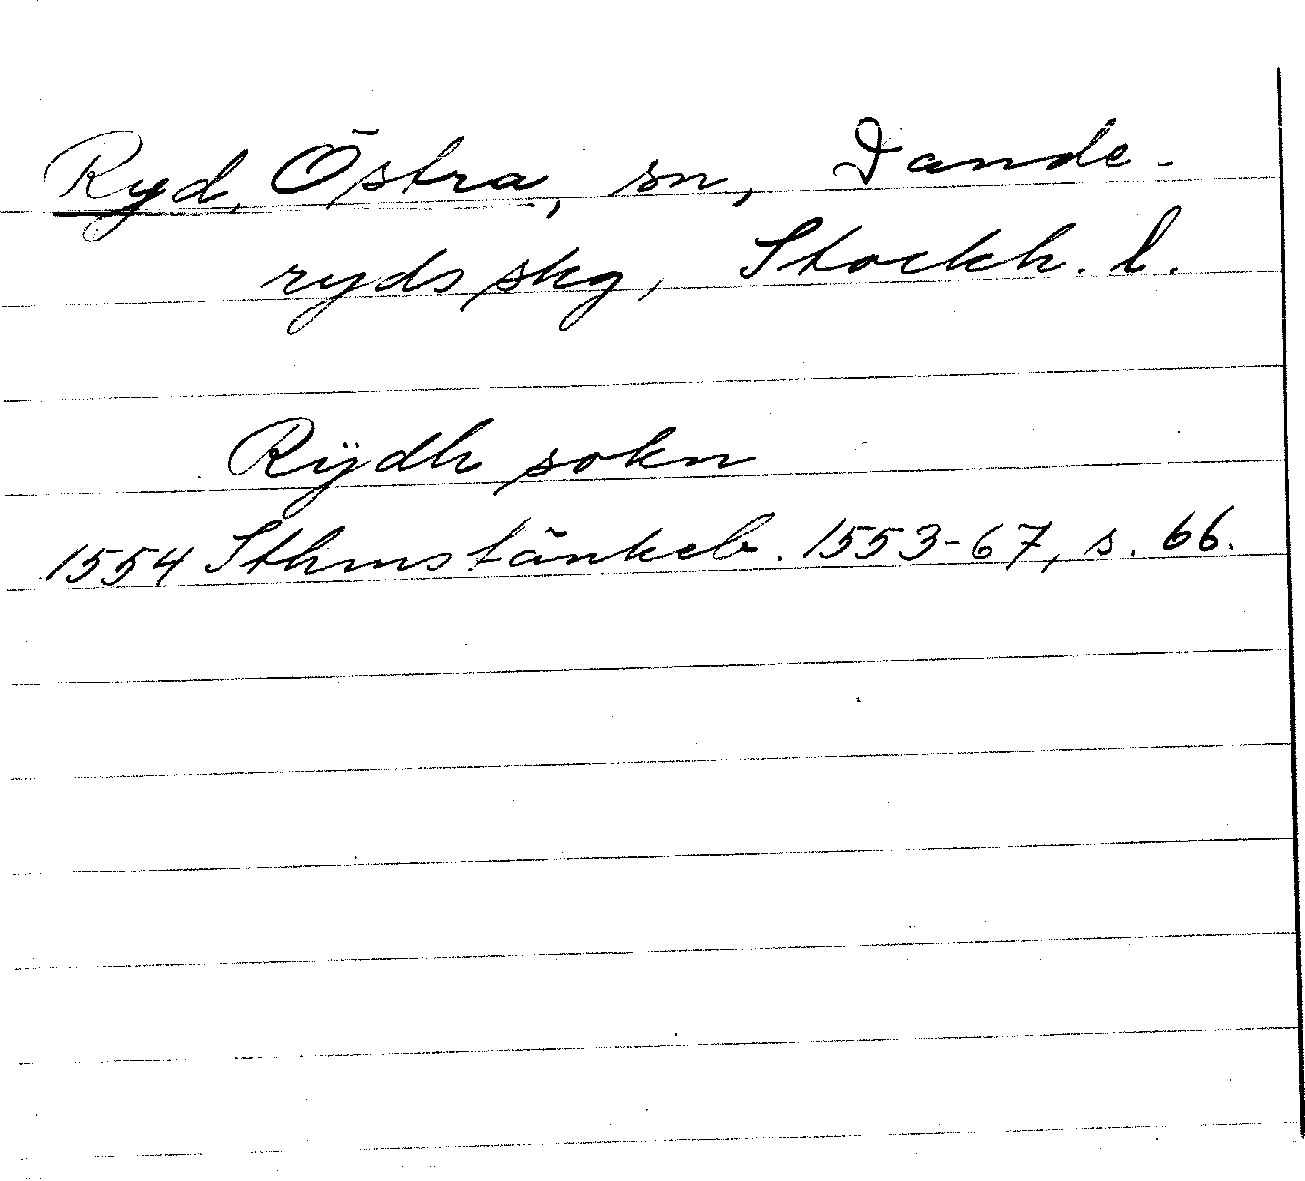 Ryd, Östra, sn, Dande-
ryds skg, Stockh. l.
Rÿdh sokn
1554 Sthms tänkeb. 1553-67, s. 66.